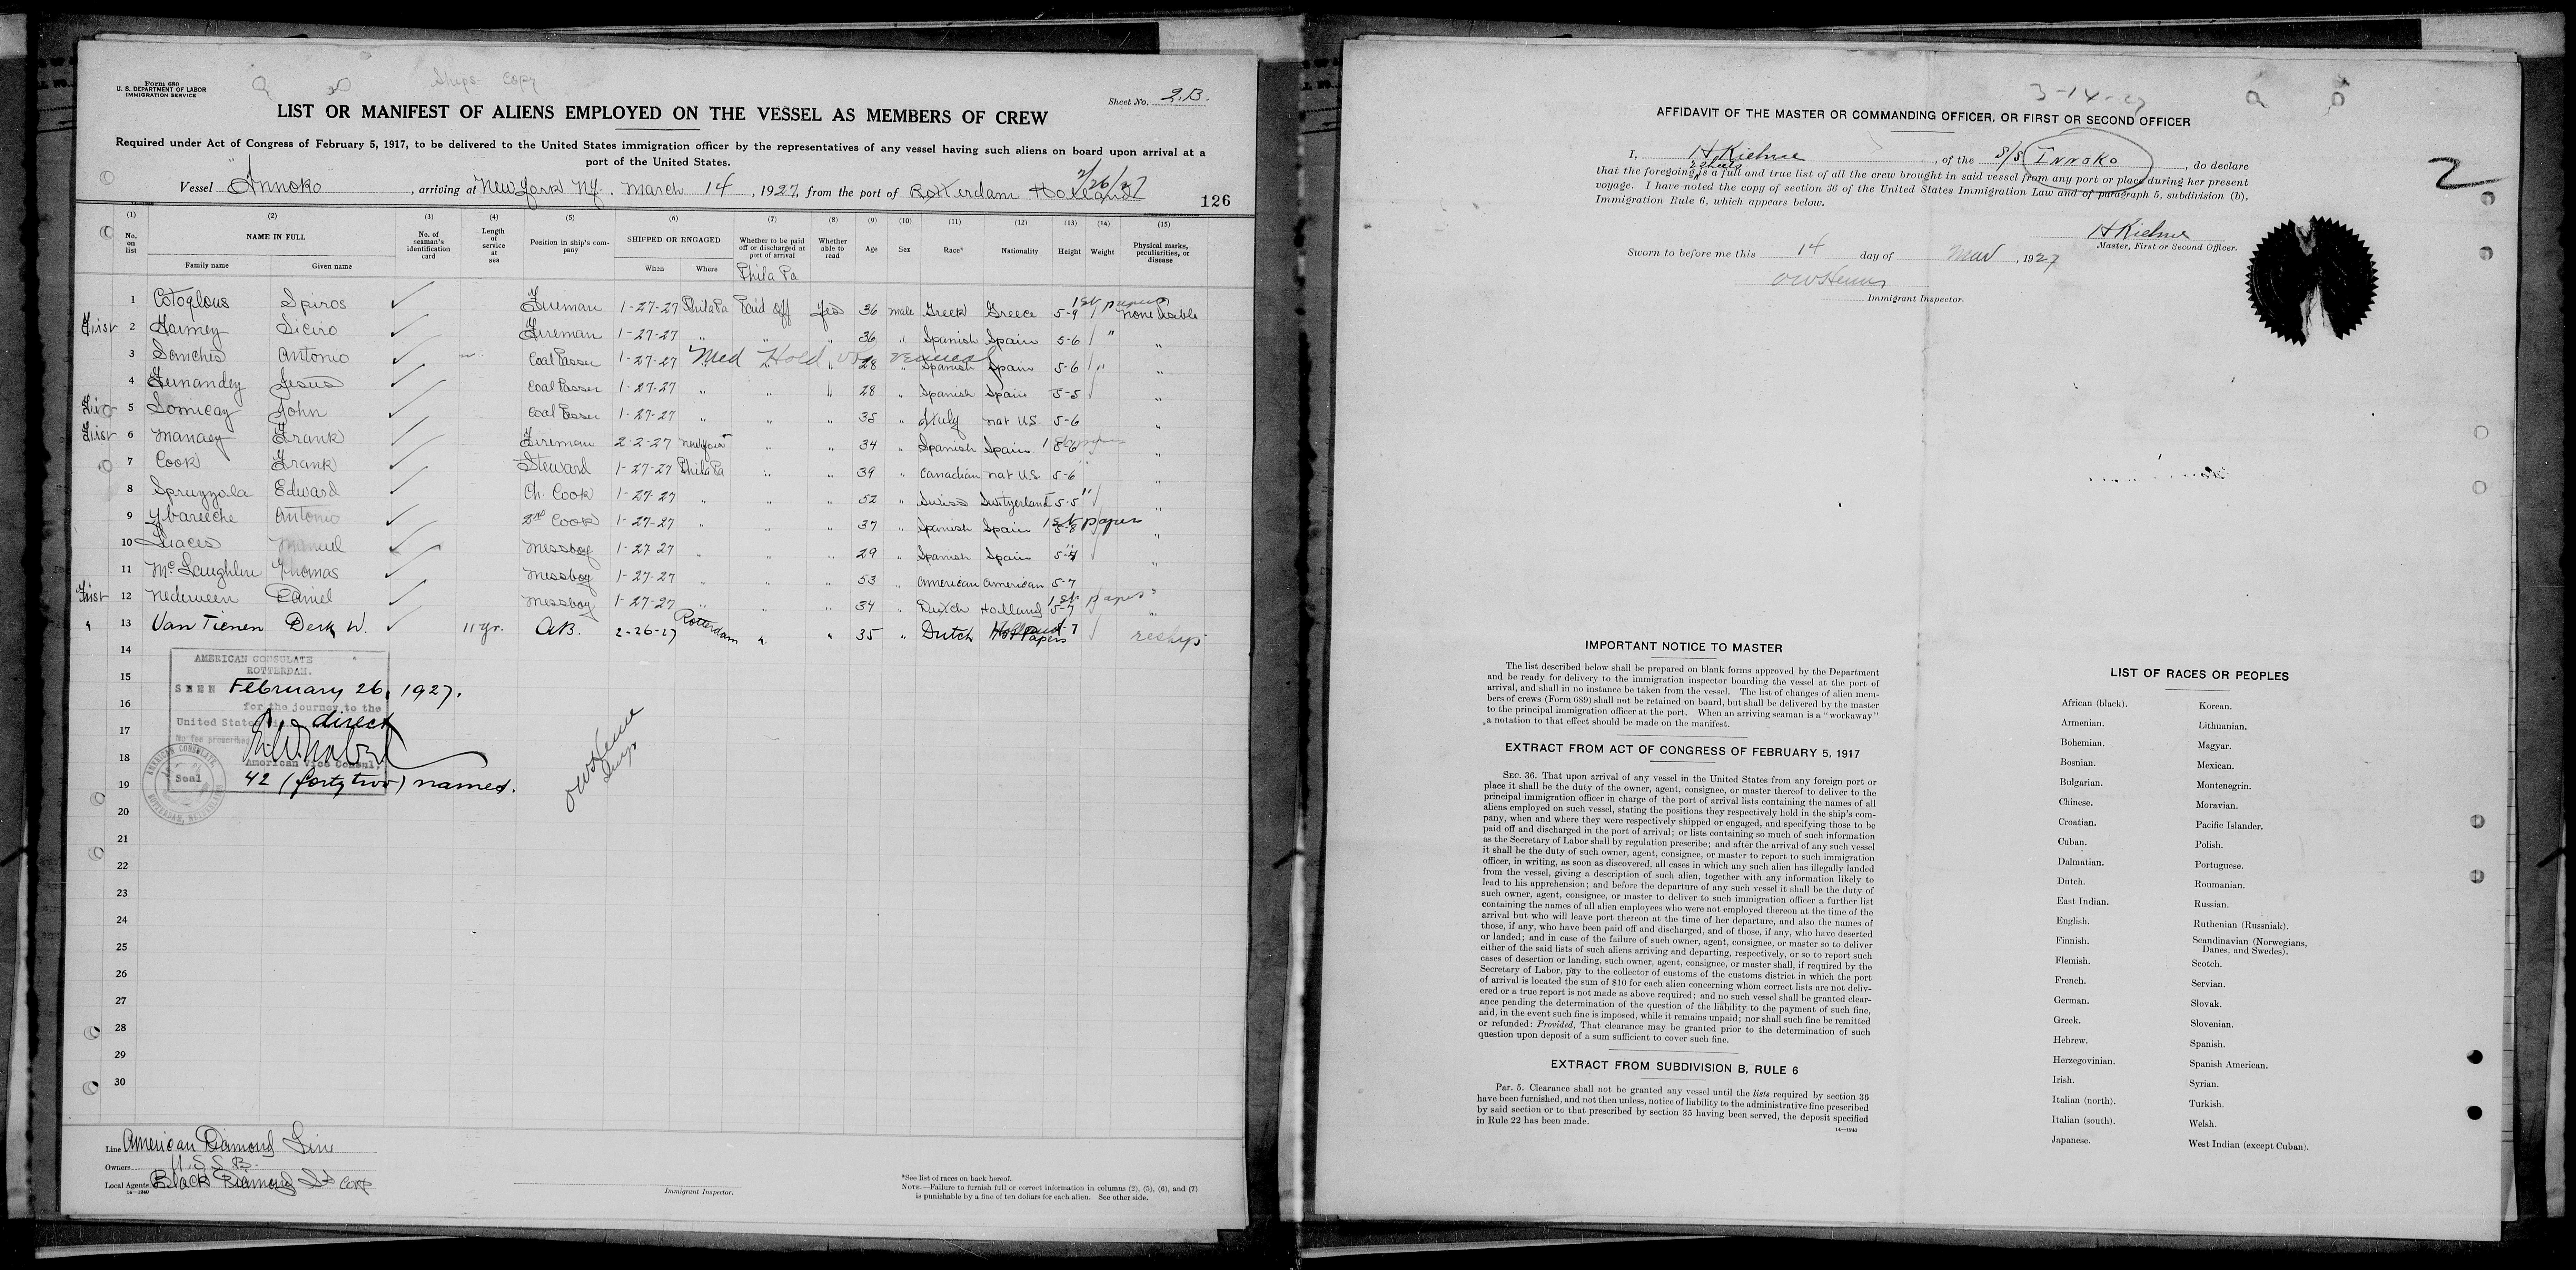 Ships Copy
Form 689
U. S. DEPARTMENT OF LABOR
IMMIGRATION SERVICE
Sheet No. 2.B.
LIST OR MANIFEST OF ALIENS EMPLOYED ON THE VESSEL AS MEMBERS OF CREW
Required under Act of Congress of February 5, 1917, to be delivered to the United States immigration officer by the representatives of any vessel having such aliens on board upon arrival at a
port of the United States.
Vessel "Innoko, arriving at New York NY. March 14, 1927, from the port of Rotterdam Holland 2/26/27
126
(1) (2) (3) (4) (5) (6) (7) (8) (9) (10) (11) (12) (13) (14) (15)
No. on list NAME IN FULL Family name Given name No. of seaman's identification card Length of service at sea Position in ship's company SHIPPED OR ENGAGED When Where Whether to be paid off or discharged at port of arrival Whether able to read Age Sex Race* Nationality Height Weight Physical marks, peculiarities, or disease
Phila Pa
1 Cotoglous Spiros Fireman 1-27-27 Phila Pa Paid Off Yes 36 male Greek Greece 5-9 1st papers none visible
First 2 Harney Fireman 1-27-27 " " " 36 " Spanish Spain 5-6 " "
3 Sanches Antonio Coal Passer 1-27-27 Med Hold venereal 28 " Spanish Spain 5-6 " "
4 Fernandey Jesus Coal Passer 1-27-27 " " " 28 " Spanish Spain 5-5 "
5 Somicay John Coal Passer 1-27-27 " " " 35 " Italy nat US. 5-6 "
First 6 Manaey Frank Fireman 2-2-27 New York " " 34 " Spanish Spain 5-6 "
7 Cook Frank Steward 1-27-27 Phila Pa " " 39 " Canadian nat US 5-6 "
8 Spruzzola Edward Ch. Cook 1-27-27 " " " 52 " Swiss Switzerland 5-5 "
9 Ybareeche Antonio 2nd Cook 1-27-27 " " " 37 " Spanish Spain 5-8 1st papers "
10 Liaces Manuel Messboy 1-27-27 " " " 29 " Spanish Spain 5-4 "
11 McLaughlin Thomas Messboy 1-27-27 " " " 53 " American American 5-7
First 12 Nederveen Daniel Messboy 1-27-27 " " " 34 " Dutch Holland 5-7 1st papers "
" 13 Van Tienen Derk W. 11 yr. A.B. 2-26-27 Rotterdam " " 35 " Dutch Holland 5-7 reships
14
15
16
17
18
19
20
21
22
23
24
25
26
27
28
29
30
AMERICAN CONSULATE
ROTTERDAM.
SEEN February 26, 1927.
for the journey to the
United States direct
No fee prescribed
American Vice Consul,
42 (forty two) named.
AMERICAN CONSULATE
Seal
ROTTERDAM, NETHERLANDS
Line American Diamond Line
Owners U.S.S.B.
Local Agents Black Diamond SS Corp
14—1240
Immigrant Inspector.
*See list of races on back hereof.
NOTE.—Failure to furnish full or correct information in columns (2), (5), (6), and (7)
is punishable by a fine of ten dollars for each alien. See other side.
3-14-27
AFFIDAVIT OF THE MASTER OR COMMANDING OFFICER, OR FIRST OR SECOND OFFICER
I, H Kiehne, of the S/S INNOKO, do declare
that the foregoing 2 sheets is a full and true list of all the crew brought in said vessel from any port or place during her present
voyage. I have noted the copy of section 36 of the United States Immigration Law and of paragraph 5, subdivision (b),
Immigration Rule 6, which appears below.
2
H Kiehne
Master, First or Second Officer.
Sworn to before me this 14 day of Mar, 1927
Immigrant Inspector.
IMPORTANT NOTICE TO MASTER
The list described below shall be prepared on blank forms approved by the Department
and be ready for delivery to the immigration inspector boarding the vessel at the port of
arrival, and shall in no instance be taken from the vessel. The list of changes of alien mem-
bers of crews (Form 689) shall not be retained on board, but shall be delivered by the master
to the principal immigration officer at the port. When an arriving seaman is a "workaway"
a notation to that effect should be made on the manifest.
EXTRACT FROM ACT OF CONGRESS OF FEBRUARY 5, 1917
SEC. 36. That upon arrival of any vessel in the United States from any foreign port or
place it shall be the duty of the owner, agent, consignee, or master thereof to deliver to the
principal immigration officer in charge of the port of arrival lists containing the names of all
aliens employed on such vessel, stating the positions they respectively hold in the ship's com-
pany, when and where they were respectively shipped or engaged, and specifying those to be
paid off and discharged in the port of arrival; or lists containing so much of such information
as the Secretary of Labor shall by regulation prescribe; and after the arrival of any such vessel
it shall be the duty of such owner, agent, consignee, or master to report to such immigration
officer, in writing, as soon as discovered, all cases in which any such alien has illegally landed
from the vessel, giving a description of such alien, together with any information likely to
lead to his apprehension; and before the departure of any such vessel it shall be the duty of
such owner, agent, consignee, or master to deliver to such immigration officer a further list
containing the names of all alien employees who were not employed thereon at the time of the
arrival but who will leave port thereon at the time of her departure, and also the names of
those, if any, who have been paid off and discharged, and of those, if any, who have deserted
or landed; and in case of the failure of such owner, agent, consignee, or master so to deliver
either of the said lists of such aliens arriving and departing, respectively, or so to report such
cases of desertion or landing, such owner, agent, consignee, or master shall, if required by the
Secretary of Labor, pay to the collector of customs of the customs district in which the port
of arrival is located the sum of $10 for each alien concerning whom correct lists are not deliv-
ered or a true report is not made as above required; and no such vessel shall be granted clear-
ance pending the determination of the question of the liability to the payment of such fine,
and, in the event such fine is imposed, while it remains unpaid; nor shall such fine be remitted
or refunded: Provided, That clearance may be granted prior to the determination of such
question upon deposit of a sum sufficient to cover such fine.
EXTRACT FROM SUBDIVISION B, RULE 6
Par. 5. Clearance shall not be granted any vessel until the lists required by section 36
have been furnished, and not then unless, notice of liability to the administrative fine prescribed
by said section or to that prescribed by section 35 having been served, the deposit specified
in Rule 22 has been made.
14—1240
LIST OF RACES OR PEOPLES
African (black). Korean.
Armenian. Lithuanian.
Bohemian. Magyar.
Bosnian. Mexican.
Bulgarian. Montenegrin.
Chinese. Moravian.
Croatian. Pacific Islander.
Cuban. Polish.
Dalmatian. Portuguese.
Dutch. Roumanian.
East Indian. Russian.
English. Ruthenian (Russniak).
Finnish. Scandinavian (Norwegians,
Danes, and Swedes).
Flemish. Scotch.
French. Servian.
German. Slovak.
Greek. Slovenian.
Hebrew. Spanish.
Herzegovinian. Spanish American.
Irish. Syrian.
Italian (north). Turkish.
Italian (south). Welsh.
Japanese. West Indian (except Cuban).